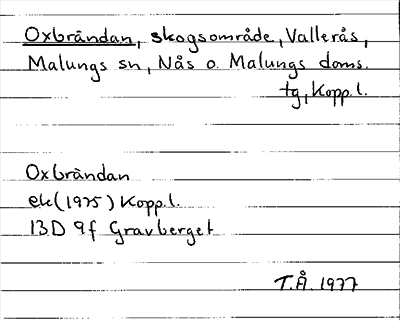 Oxbrändan, skogsområde, Vallerås,
Malungs sn, Nås o. Malungs doms.
tg, Kopp.l.
Oxbrändan
ek (1975) Kopp.l.
13D 9f Gravberget
T.Å. 1977